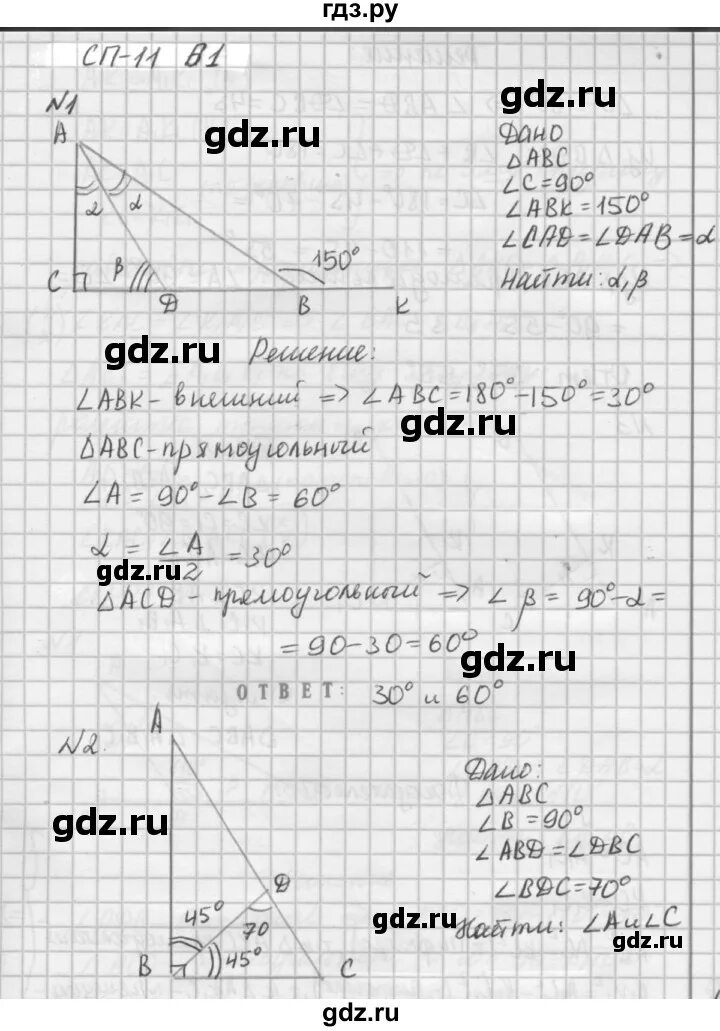 гдз.ру
СП-11 В1
№1
A
α α
β
C
D
B
K
150°
Дано
△ABC
∠C=90°
∠ABK=150°
∠CAD=∠DAB=α
Найти: α,β
gdz.ru
gdz.ru
gdz.ru
Решение:
∠ABK - внешний => ∠ABC=180°-150°=30°
gdz.ru
△ABC-прямоугольный
∠A = 90°-∠B = 60°
α = ∠A/2 = 30°
gdz.ru
△ACD - прямоугольный => ∠β = 90°-α =
= 90-30=60°
gdz.ru
ОТВЕТ: 30° и 60°
№2.
A
D
B
C
45°
70
45°
gdz.ru
Дано:
△ABC
∠B =90°
∠ABD=∠DBC
∠BDC=70°
Найти: ∠A и ∠C
gdz.ru
gdz.ru
gdz.ru